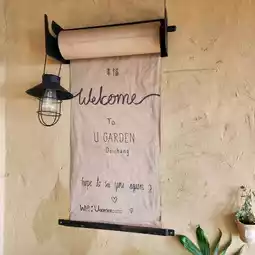 Welcome
To
U GARDEN
Daichang
hope to see you again :)
Wifi: